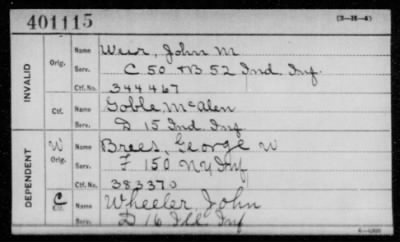 401115
(3-38-4)
INVALID
Orig.
Name Weir, John M
Serv. C 50 + B 52 Ind. Inf.
Ctf. No. 344467
Ctf.
Name Goble McAlen
Serv. D 15 Ind Inf
DEPENDENT
W
Orig.
Name Brees, George W
Serv. F 150 NY Inf
Ctf. No. 383370
C
Name Wheeler John
Serv. D 16 Ill Inf